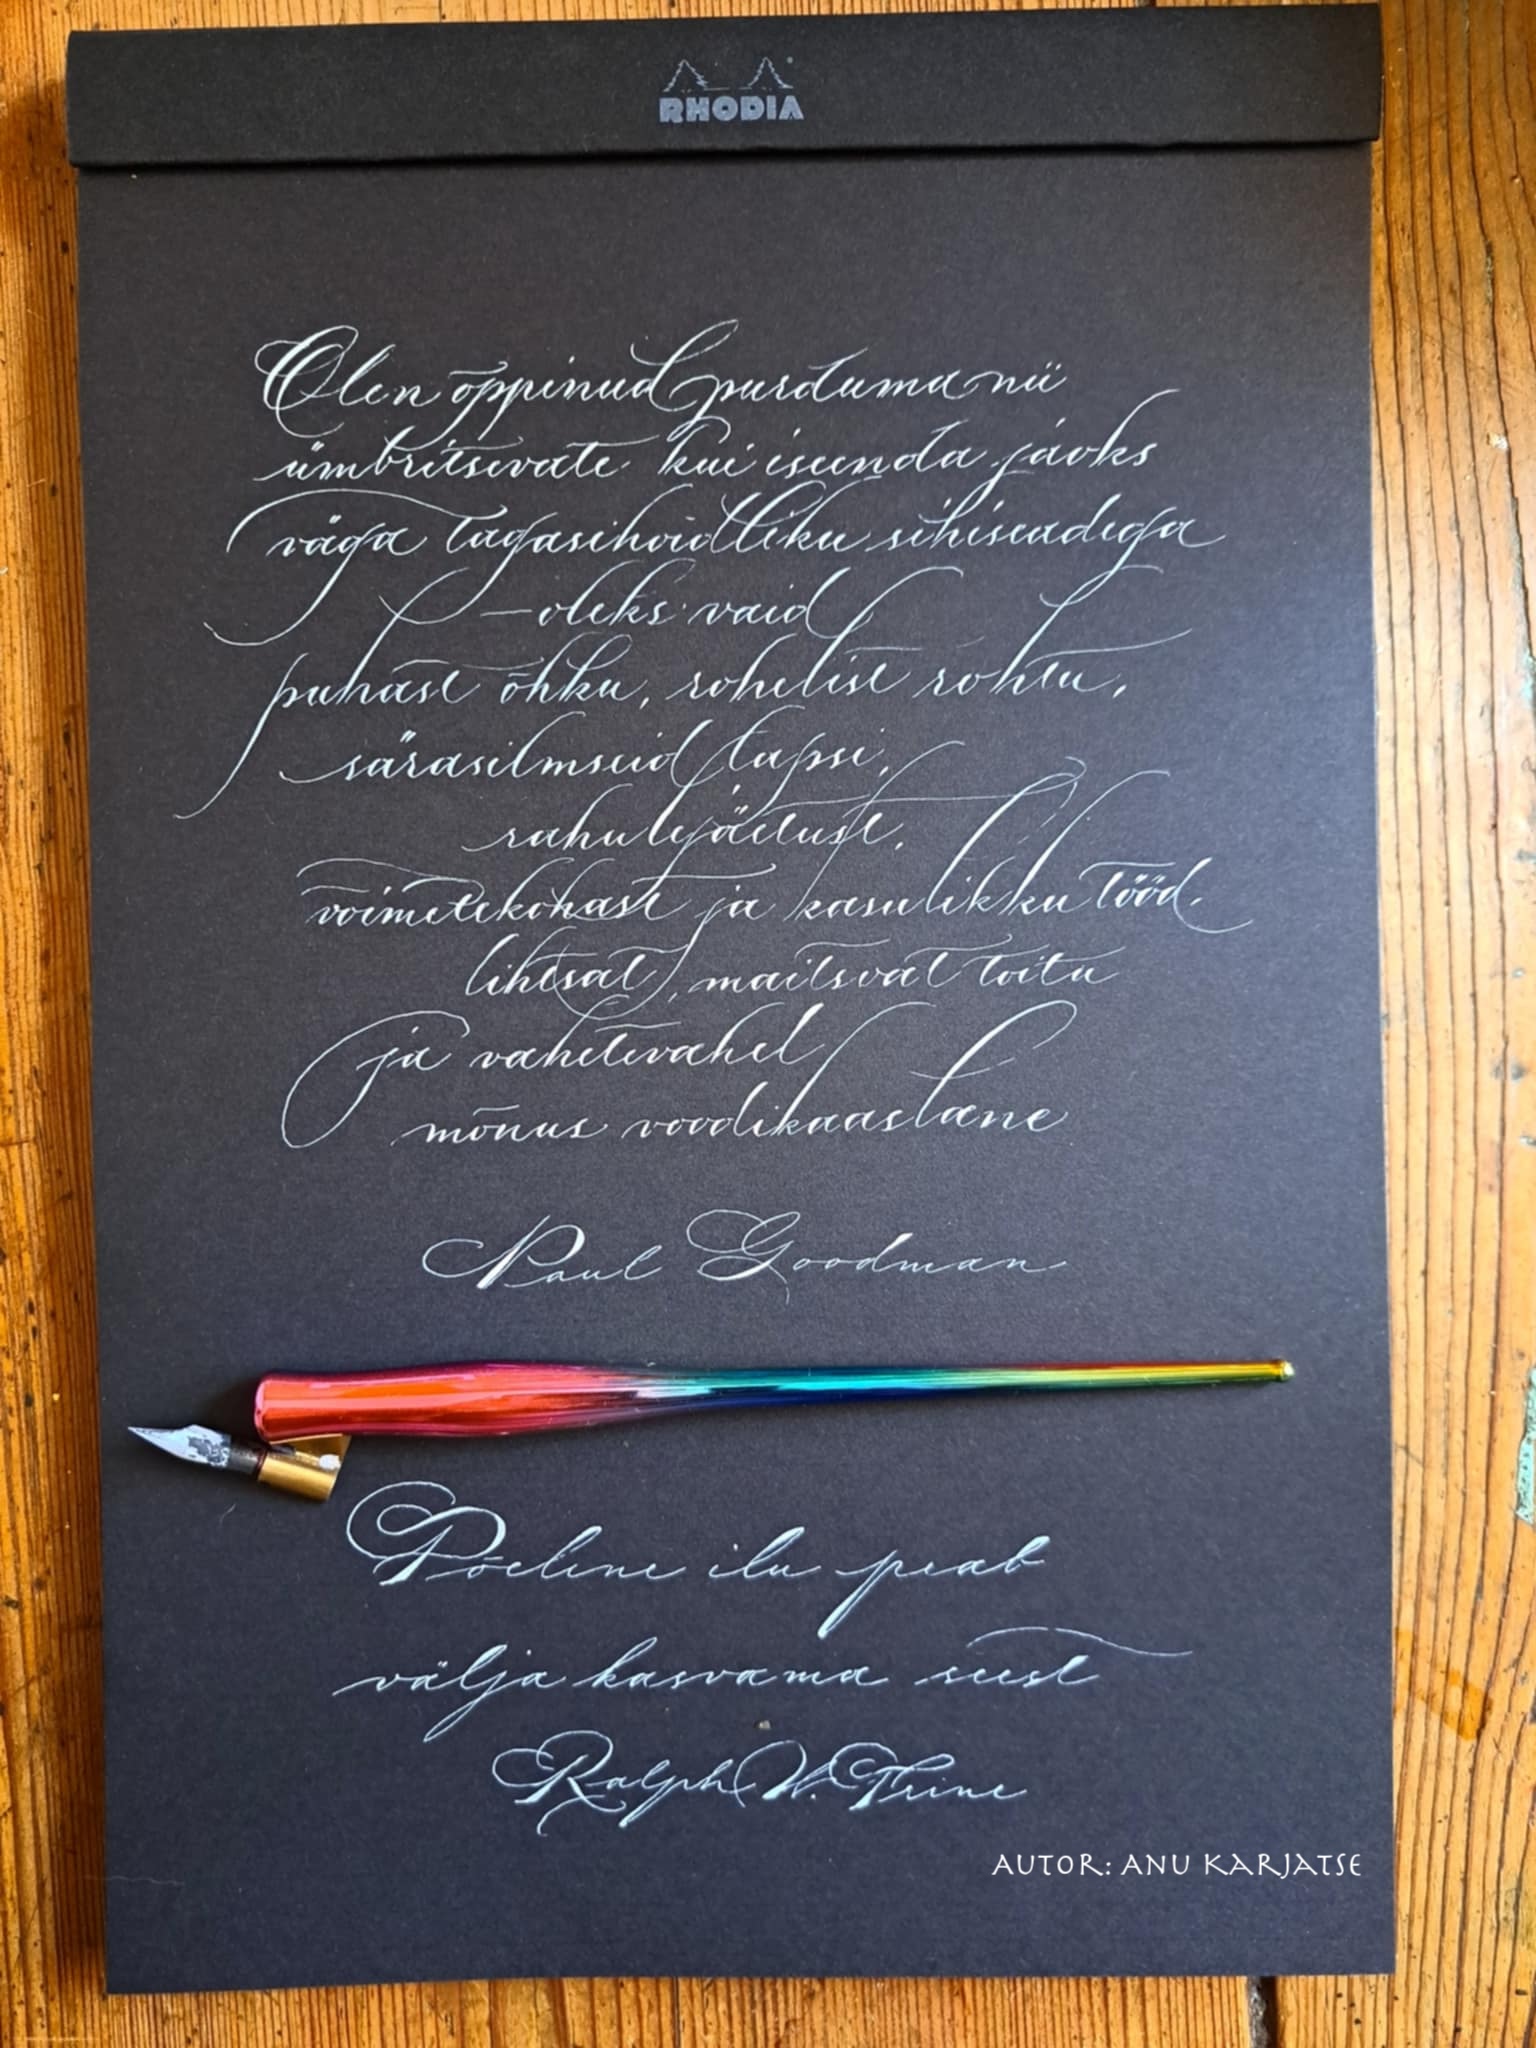 RHODIA
Olen õppinud piirduma nii
ümbritsevate kui iseenda jaoks
väga tagasihoidliku sihiseadega
– oleks vaid
puhast õhku, rohelist rohtu,
särasilmseid lapsi,
rahulejäetust,
võimetekohast ja kasulikku tööd,
lihtsat, maitsvat toitu
ja vahetevahel
mõnus voodikaaslane
Paul Goodman
Tõeline ilu peab
välja kasvama seest
Ralph W. Trine
AUTOR: ANU KARJATSE